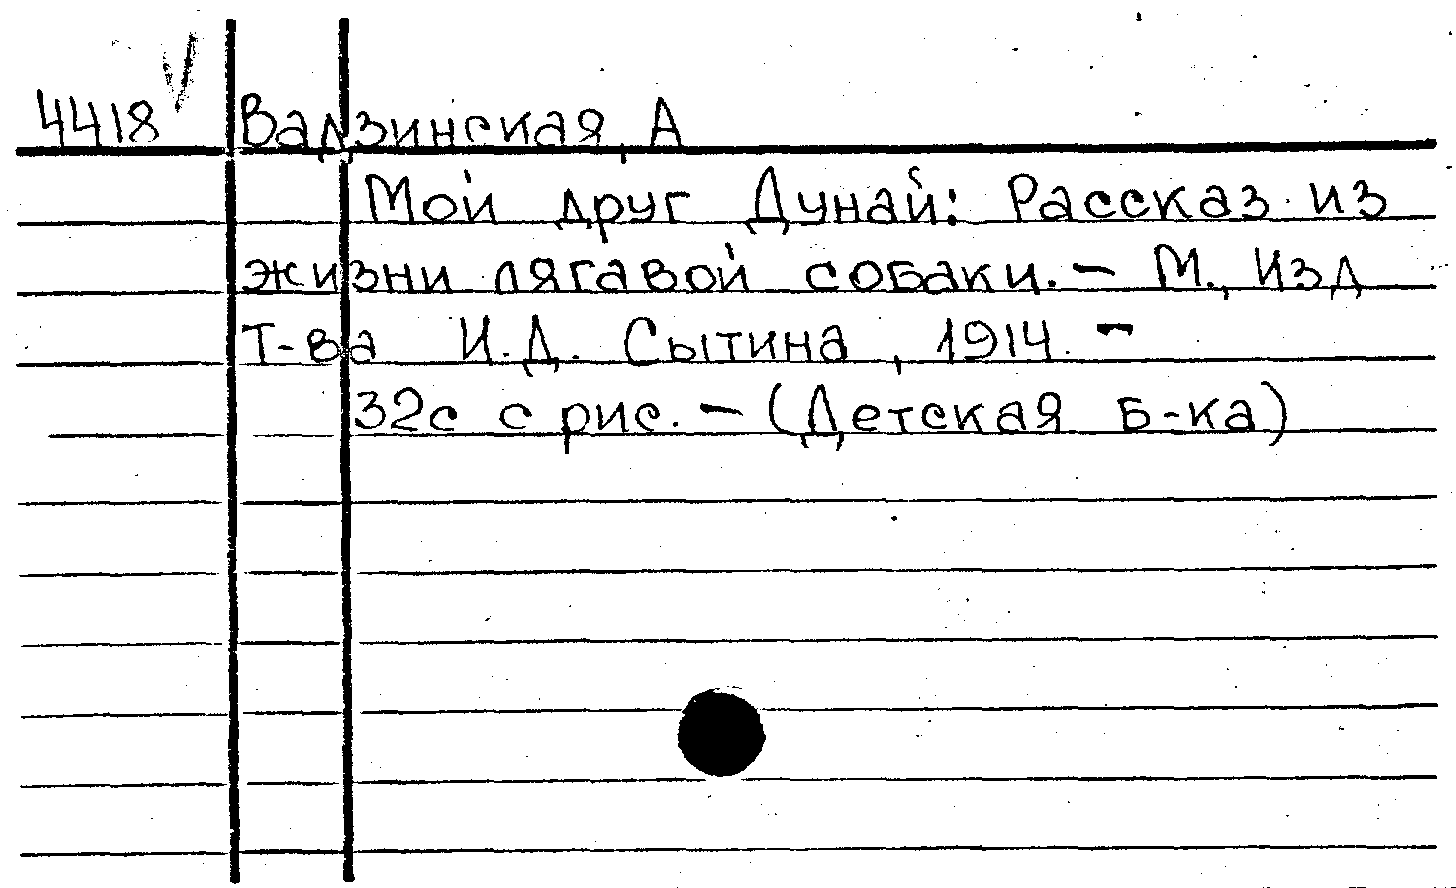 4418 Вадзинская, А
Мой друг Дунай: Рассказ из
жизни лягавой собаки. - М., Изд
Т-ва И.Д. Сытина, 1914. -
32с с рис. - (Детская б-ка)